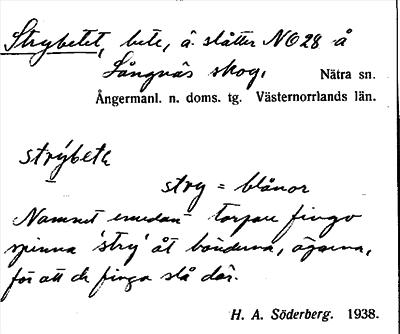 Strybetet, bete, å slåtter NO 28 å
Långnäs skog.
Nätra sn.
Ångermanl. n. doms. tg. Västernorrlands län.
strýbetə
stry = blånor
Namnet emedan torpare fingo
spinna 'stry' åt bönderna, ägarna,
för att de finga slå där.
H. A. Söderberg. 1938.